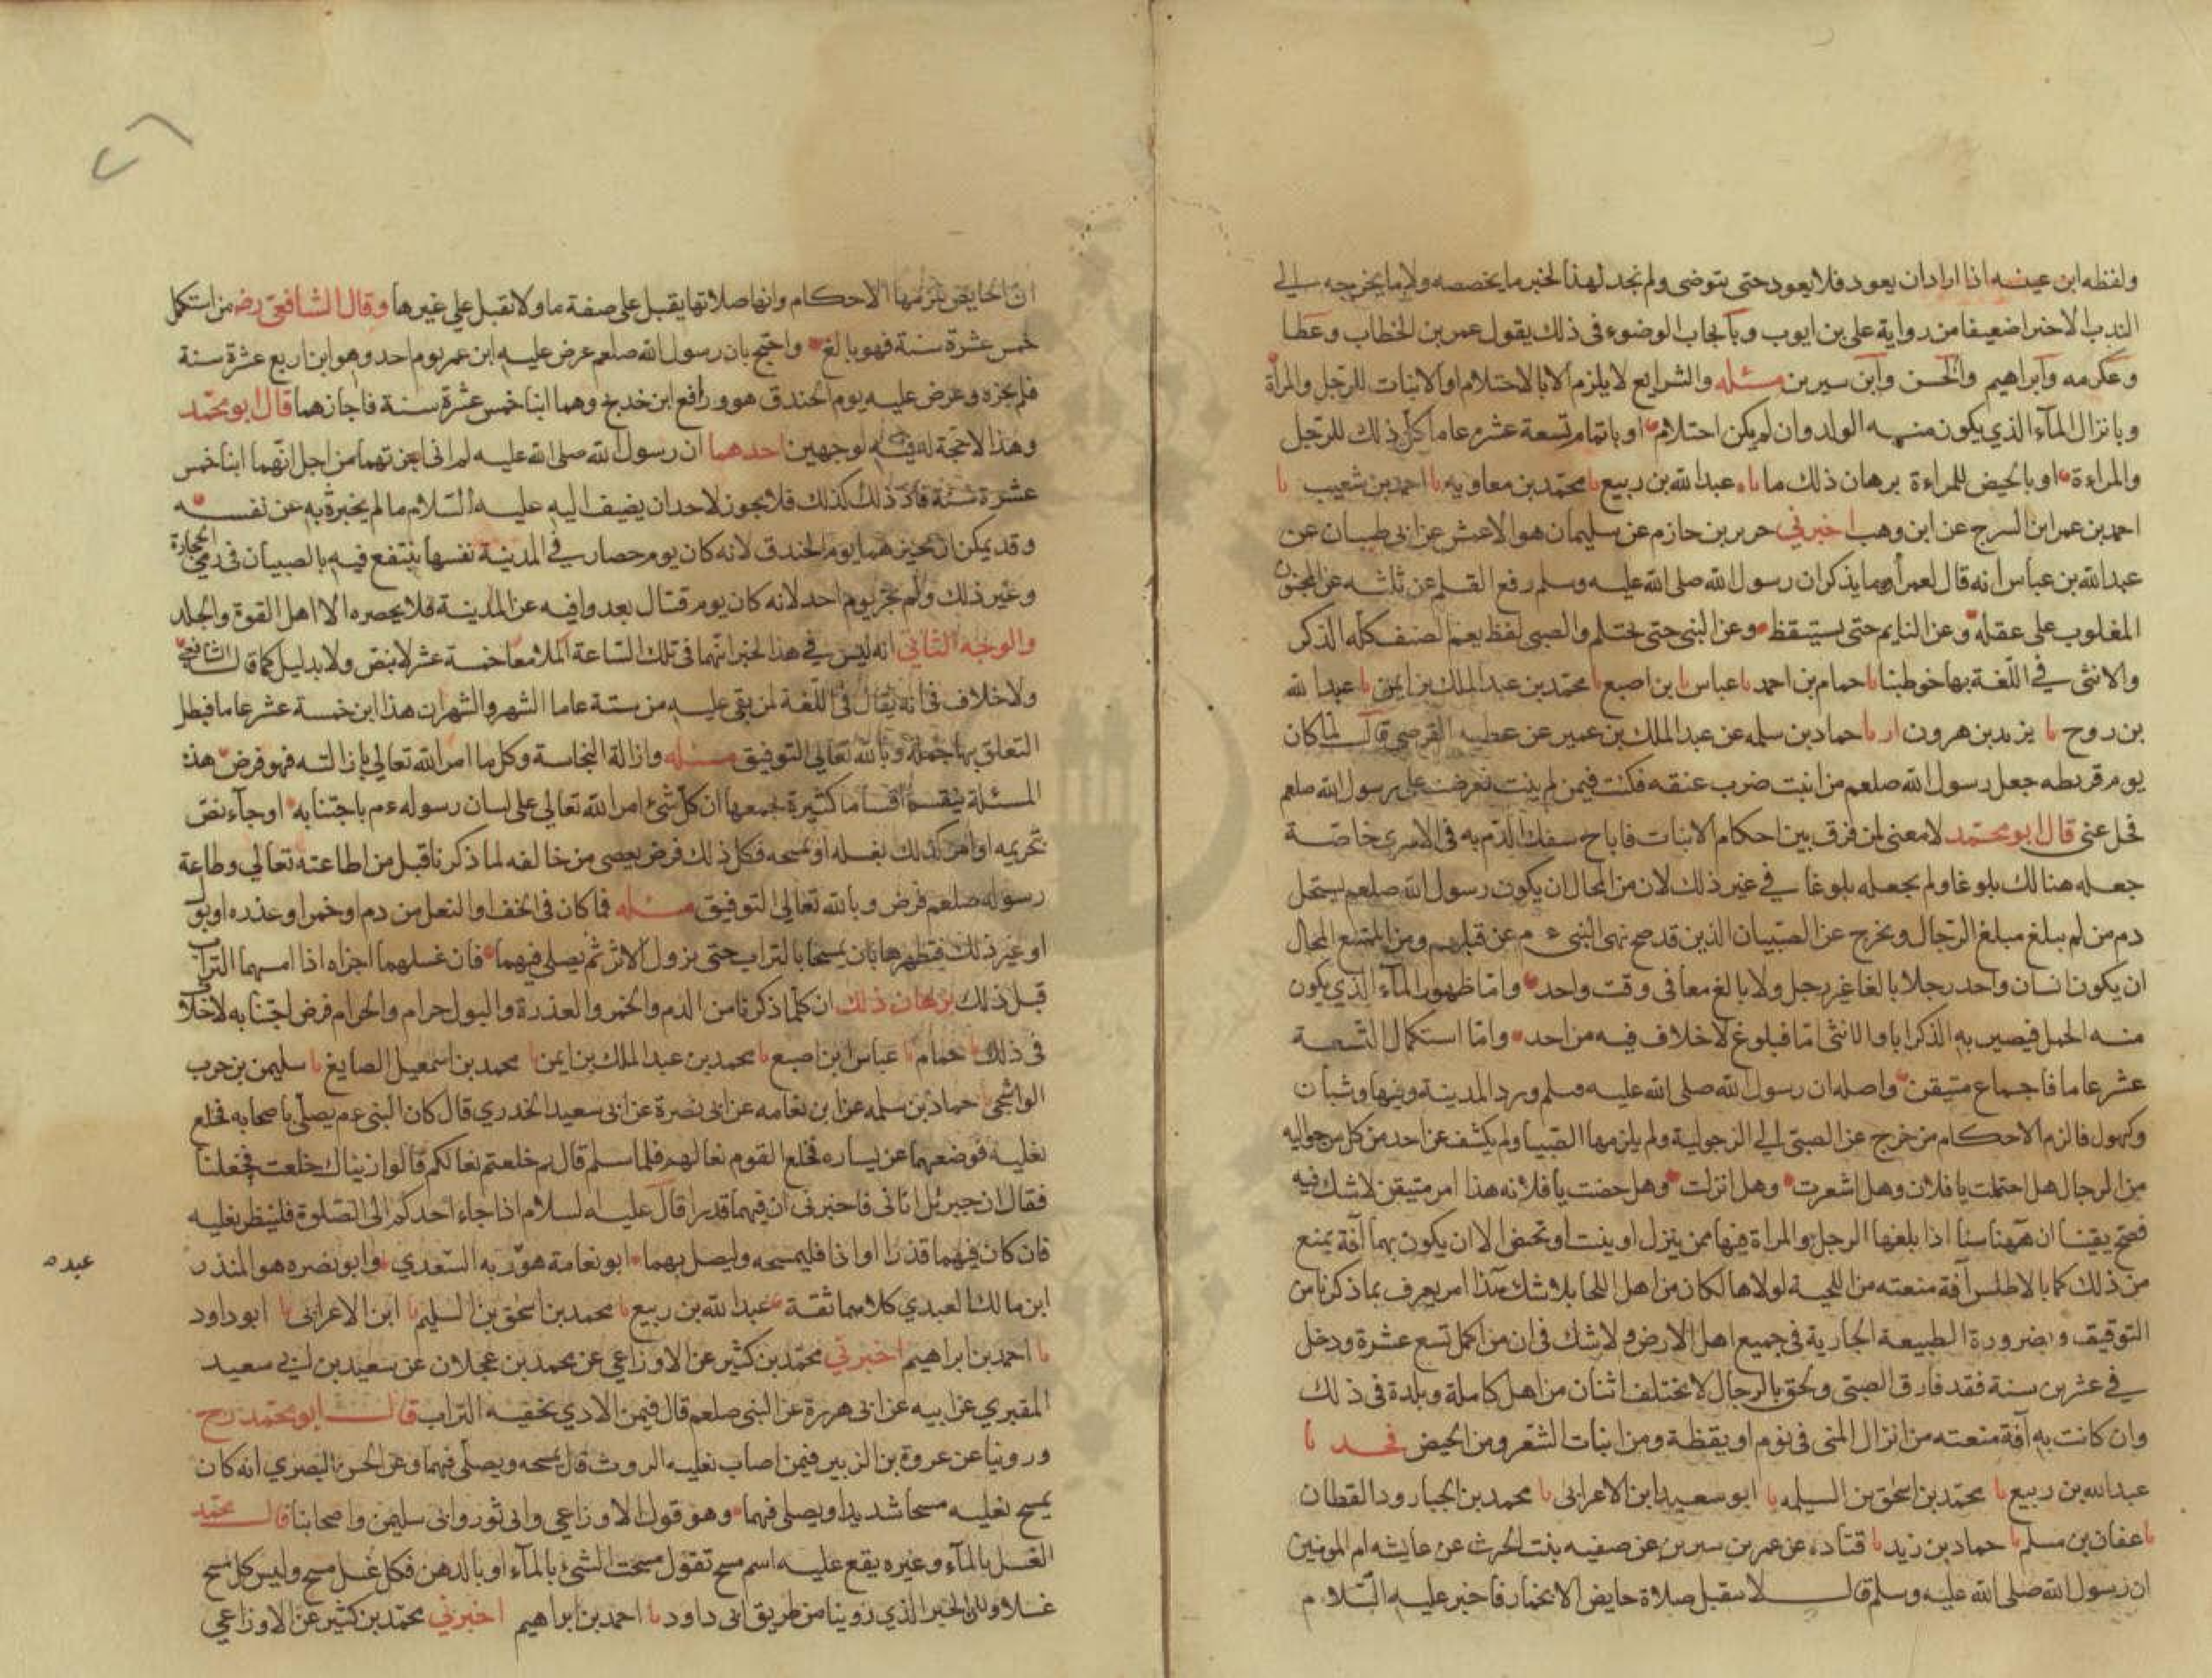 ولفظه ابن عيينه اذا اراد ان يعود فلا يعود حتى يتوضى ولم نجد لهذا الخبر ما يخصصه ولا ما يخرجه الي
الندب الا خبرا ضعيفا من رواية على بن ايوب وبايجاب الوضوء فى ذلك يقول عمر بن الخطاب وعطا
وعكرمه وابراهيم والحسن وابن سيرين مسئله والشرايع لا يلزم الا بالاحتلام او الانبات للرجل والمراة
وبانزال المآء الذي يكون منه الولد وان لم يكن احتلام او باتمام تسعة عشر عاما كل ذلك للرجل
والمراءة او بالحيض للمراءة برهان ذلك ما نا عبد الله بن ربيع نا محمد بن معاويه نا احمد بن شعيب نا
احمد بن عمر ابن السرح عن ابن وهب اخبرني جرير بن حازم عن سليمان هو الاعمش عن ابى ظبيان عن
عبد الله بن عباس انه قال لعمر أوما يذكر ان رسول الله صلى الله عليه وسلم رفع القلم عن ثلثه عن المجنون
المغلوب على عقله وعن النايم حتى يستيقظ وعن الصبى حتى يحتلم والصبى لفظ يعم الصنف كله الذكر
والانثى في اللغة بها خوطبنا نا حمام بن احمد نا عباس نا بن اصبغ نا محمد بن عبد الملك بن ايمن نا عبد الله
بن روح نا يزيد بن هرون انا حماد بن سلمه عن عبد الملك بن عمير عن عطيه القرضي قال لما كان
يوم قريظه جعل رسول الله صلعم من انبت ضرب عنقه فكنت فيمن لم ينبت فعرضت على رسول الله صلعم
فخل عنى قال ابو محمد لا معنى لمن فرق بين احكام الانبات فاباح سفك الدم به فى الاسرى خاصة
جعله هنالك بلوغا ولم يجعله بلوغا في غير ذلك لان من المحال ان يكون رسول الله صلعم يستحل
دم من لم يبلغ مبلغ الرجال ويخرج عن الصبيان الذين قد صح نهى النبى عم عن قبلهم ومن الممتنع المحال
ان يكون انسان واحد رجلا بالغا غير رجل ولا بالغ معا فى وقت واحد واما ظهور المآء الذي يكون
منه الحمل فيصير به الذكر ابا والانثى اما فبلوغ لا خلاف فيه من احد واما استكمال التسعة
عشر عاما فاجماع متيقن واصله ان رسول الله صلى الله عليه وسلم ورد المدينة وفيها وشبان
وكهول فالزم الاحكام من خرج عن الصبى الي الرجولية ولم يلزمها الصبيا ولم يكشف عن احد من كل من حواليه
من الرجال هل احتلمت يا فلان وهل اشعرت وهل انزلت وهل حضت يا فلانه هذا امر متيقن لا شك فيه
فصح يقينا ان ههنا سنا اذا بلغها الرجل والمراة فيها ممن ينزل او ينبت او تحيض الا ان يكون بهما آفة يمنع
من ذلك كما بالاطلس آفة منعته من اللحية لولاها لكان من اهل اللحا بلا شك هذا امر يعرف بما ذكرنا من
التوقيف وبضرورة الطبيعة الجارية فى جميع اهل الارض ولا شك فى ان من اكمل تسع عشرة ودخل
في عشرين سنة فقد فارق الصبى ولحق بالرجال لا يختلف اثنان من اهل كاملة وبلدة فى ذلك
وان كانت به آفة منعته من انزال المنى فى نوم او يقظة ومن انبات الشعر ومن الحيض نا
عبد الله بن ربيع نا محمد بن اسحق بن السليم نا ابو سعيد ابن الاعرابى نا محمد بن الجبارود القطان
نا عفان بن مسلم نا حماد بن زيد نا قتاده عن عمر بن سيرين عن صفيه بنت الحرث عن عايشه ام المومنين
ان رسول الله صلى الله عليه وسلم قال لا يقبل صلاة حايض الا بخمار فاخبر عليه السلام
ان الحايض تلزمها الاحكام وانها صلاتها يقبل على صفة ما ولا تقبل علي غيرها وقال الشافعي رضه من استكمل
خمس عشرة سنة فهو بالغ واحتج بان رسول الله صلعم عرض عليه ابن عمر يوم احد وهو ابن اربع عشرة سنة
فلم يجزه وعرض عليه يوم الخندق هو ورافع ابن خديج وهما ابنا خمس عشرة سنة فاجازهما قال ابو محمد
وهذا لا حجة له فيه لوجهين احدهما ان رسول الله صلى الله عليه لم انى اجزتهما من اجل انهما ابنا خمس
عشرة سنة فاذ ذلك كذلك فلا يجوز لاحد ان يضيف اليه عليه السلام ما لم يخبر به عن نفسه
وقد يمكن ان يجيزهما يوم الخندق لانه كان يوم حصار في المدينة نفسها ينتفع فيه بالصبيان فى رمي الحجارة
وغير ذلك ولم يجز يوم احد لانه كان يوم قتال بعدوا فيه عن المدينة فلا يحصره الا اهل القوة والجلد
والوجه الثاني انه ليس في هذا الخبر انهما فى تلك الساعة اكملا معا خمسة عشر لا بنص ولا بدليل كما قال الشافعي
ولا خلاف فى انه يقال فى اللغة لمن بقى عليه من ستة عاما الشهر والشهران هذا ابن خمسة عشر عاما فبطل
التعلق بها جملة وبالله تعالي التوفيق مسئله وازالة النجاسة وكل ما امر الله تعالي بازالته فهو فرض هذه
المسئلة ينقسم اقساما كثيرة يجمعها ان كل شئ امر الله تعالي على لسان رسوله عم باجتنابه او جآء نص
تحريمه او امر كذلك بغسله او بمسحه فكل ذلك فرض يعصى من خالفه لما ذكرنا قبل من اطاعته تعالي وطاعة
رسوله صلعم فرض وبالله تعالي التوفيق مسئله فما كان فى الخف والنعل من دم او خمر او عذره او بول
او غير ذلك فتطهرها بان يمسحا بالتراب حتى يزول الاثر ثم يصلي فيهما فان غسلهما اجزاه اذا امسهما التراب
قبل ذلك برهان ذلك ان كلما ذكرنا من الدم والخمر والعذرة والبول حرام والحرام فرض اجتنابه لا خلاف
فى ذلك نا حمام نا عباس ابن اصبغ نا محمد بن عبد الملك بن ايمن نا محمد بن اسمعيل الصايغ نا سليمن بن حرب
الواشحي نا حماد بن سلمه عن ابى نعامه عن ابى نضرة عن ابى سعيد الخدري قال كان النبى عم يصلي باصحابه فخلع
نعليه فوضعهما عن يساره فخلع القوم نعالهم فلما سلم قال لم خلعتم نعالكم قالوا رايناك خلعت فخعلنا
فقال ان جبريل اتانى فاخبرنى ان فيهما قذرا قال عليه لسلام اذا جاء احدكم الى الصلوة فلينظر نعليه
فان كان فيهما قذرا او اذا فليمسحه وليصل بهما ابو نعامة هو ربه السعدي وابو نضره هو المنذر
عبده
ابن مالك العبدي كلاهما ثقة عبد الله بن ربيع نا محمد بن اسحق بن السليم نا ابن الاعرابى نا ابو داود
نا احمد بن ابراهيم اخبرني محمد بن كثير عن الاوزاعي عن محمد بن عجلان عن سعيد بن ابي سعيد
المقبري عن ابيه عن ابى هريرة عن النبى صلعم قال فيمن الاذي بخفيه التراب قال ابو محمد رح
وروينا عن عروة بن الزبير فيمن اصاب نعليه الروث قال يمسحه ويصلي فيهما وعن الحسن البصري انه كان
يمسح نعليه مسحا شديدا ويصلى فيهما وهو قول الاوزاعي وابى ثور وابى سليمن واصحابنا قال محمد
الغسل بالمآء وغيره يقع عليه اسم مسح تقول مسحت الشئ بالمآء او بالدهن فكل غسل مسح وليس كل مسح
غسلا ولان الخبر الذي روينا من طريق ابى داود نا احمد بن ابراهيم اخبرني محمد بن كثير عن الاوزاعي